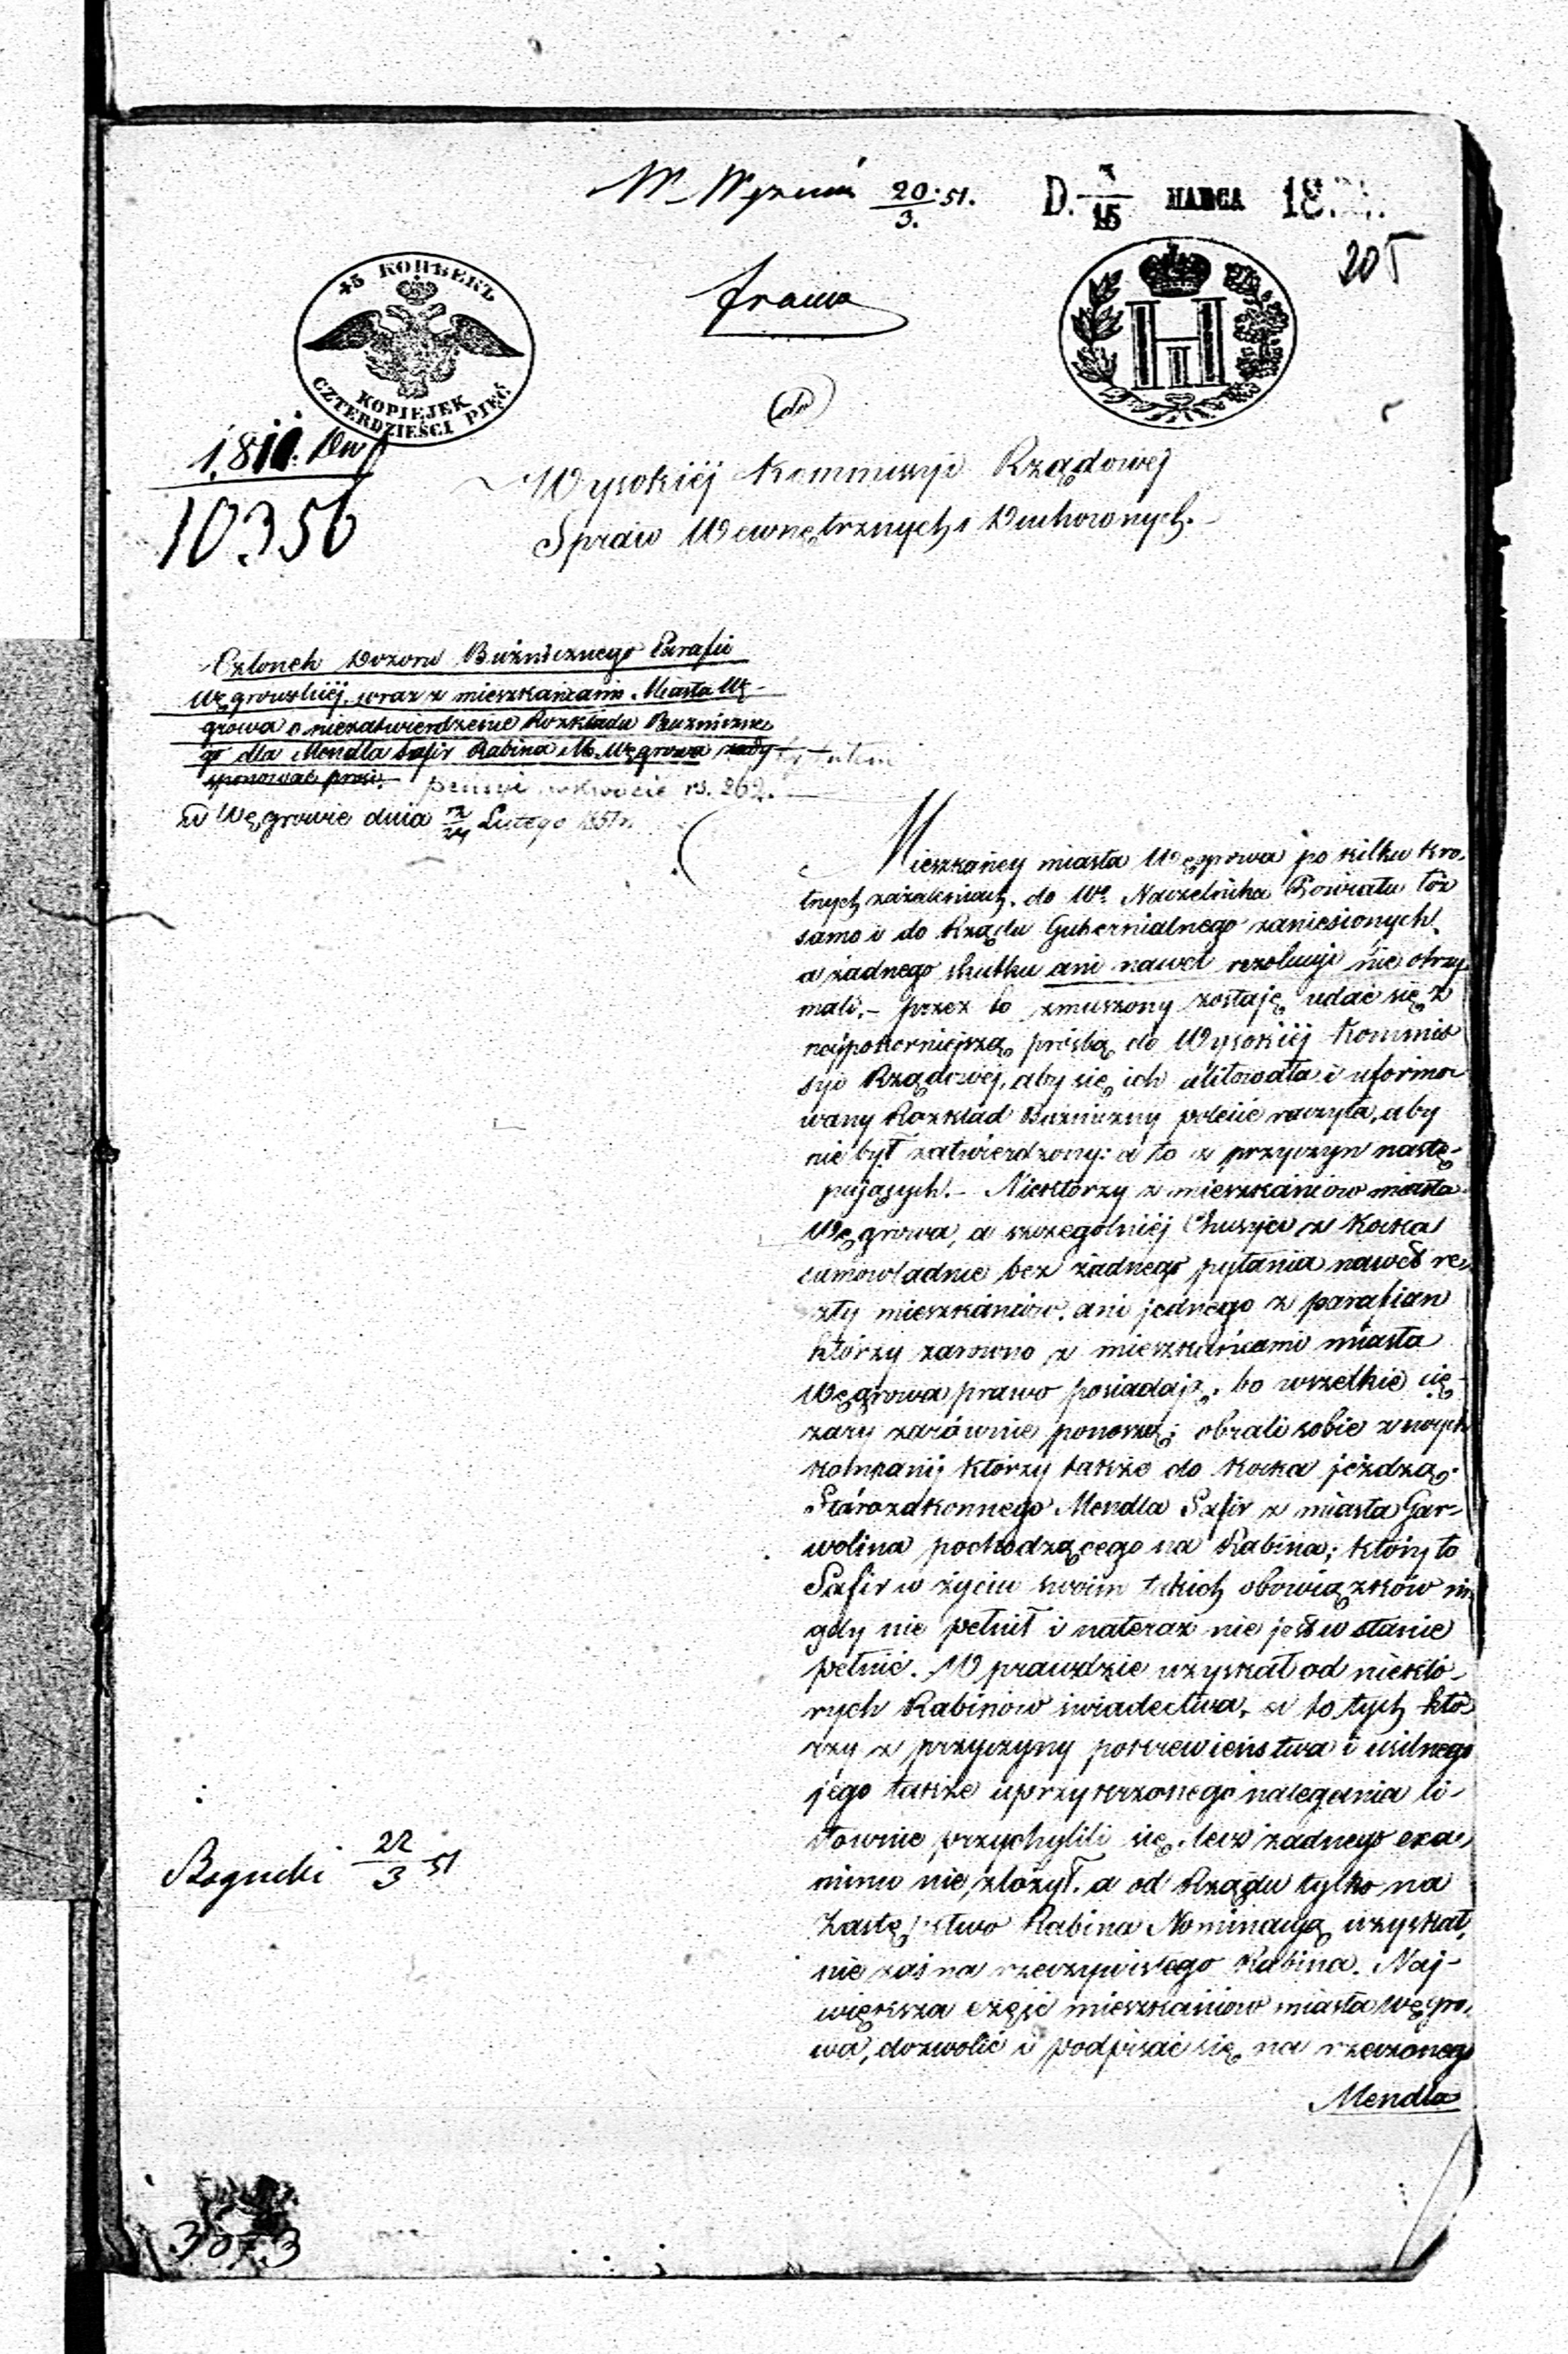 20/3. 51.
D. 3/15 MARCA 18
205
45 КОПѢЕКЪ
KOPIEJEK
CZTERDZIEŚCI PIĘĆ
franco
do
10356
Wysokiéj Kommissyi Rządowej
Spraw Wewnętrznych i Duchownych.
Członek Dozoru Bużnicznego Parafii
Węgrowskiéj wraz z mieszkańcami Miasta Wę-
growa o niezatwierdzenie Rozkładu Bużniczne
go dla Mendla Safir Rabina M. Węgrowa
pensyi w kwocie rs. 262.
w Węgrowie dnia 12/24 Lutego 1851 r.
Mieszkańcy miasta Węgrowa po kilku kro-
tnych zażaleniach do Wo. Naczelnika Powiatu toż
samo i do Rządu Gubernialnego zaniesionych
a żadnego skutku ani nawet rezolucyi nie otrzy
mali, - przez to zmuszony zostaję udać się z
najpokorniejszą prośbą do Wysokiéj Kommis
syi Rządowéj, aby się ich ulitowała i uformo
wany Rozkład Bużniczny polecić raczyła, aby
nie był zatwierdzony: a to z przyczyn nastę-
pujących. - Niektórzy z mieszkańców miasta
Węgrowa, a szczególniéj Chusyci z Kocka
samowładnie bez żadnego pytania nawet re
szty mieszkańców, ani jednego z parafian
którzy zarowno z mieszkańcami miasta
Węgrowa prawo posiadają, bo wszelkie cię-
żary zarównie ponoszą; obrali sobie z swych
kompanij którzy także do Kocka jeżdżą.
Starozakonnego Mendla Safir z miasta Gar-
wolina pochodzącego na Rabina; który to
Safir w życiu swoim takich obowiązków ni
gdy nie pełnił i nateraz nie jest w stanie
pełnić. W prawdzie uzyskał od niektó-
rych Rabinów świadectwa, a to tych któ
rzy z przyczyny pokrewieństwa i usilnego
jego także uprzykrzonego nalegania li-
stownie przychylili się, lecz żadnego exa
minu nie złożył, a od Rządu tylko na
Zastępstwo Rabina Nominacyą uzyskał,
nie zaś na rzeczywistego Rabina. Naj-
większa część mieszkańców miasta Węgro
wa, dozwolić i podpisać się na rzeczonego
Mendla
Bogucki 22/3 51
3073